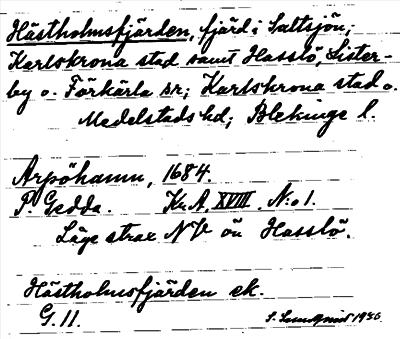 Hästholmsfjärden, fjärd i Saltsjön;
Karlskrona stad samt Hasslö, Lister-
by o. Förkärla sr; Karlskrona stad o.
Medelstads hd; Blekinge l.
Arpöhamn, 1684.
P. Gedda. Kr.A. XVIII. N:o 1.
Läge strax NV ön Hasslö.
Hästholmsfjärden ek.
G. 11.
S. 1930